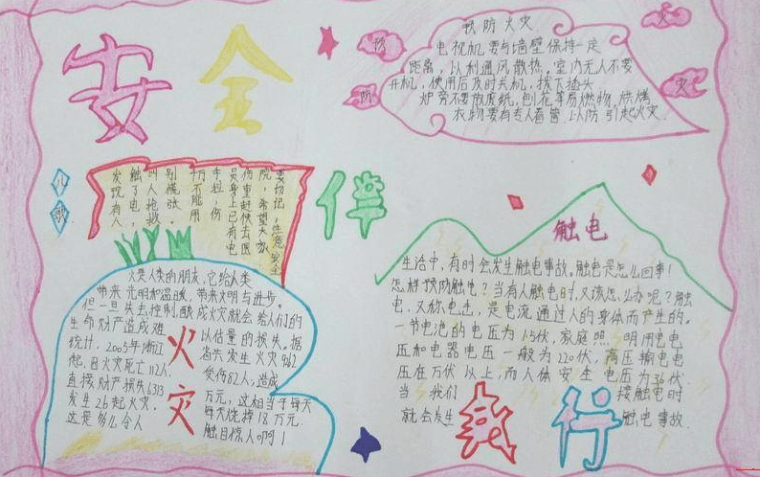 安全
伴
我行
预防火灾
预防火灾
电视机要与墙壁保持一定
距离，以利通风散热，室内无人不要
开机，使用后及时关机，拔下插头
炉旁不要放废纸，刨花等易燃物，烘烤
衣物要有专人看管，以防引起火灾.
儿歌
发现有人
触了电，
叫人抢救
别慌张.
千万不能用
手拉，伤
员身上已有电
伤重赶快去医
院，希望大家
要切记，注意安全
火灾
火是人类的朋友，它给人类
带来光明和温暖，带来文明与进步。
但一旦失去控制，酿成火灾就会给人们的
生命财产造成难以估量的损失。据
统计，2003年浙江省共发生火灾
直接财产损失1313万元，这相当于每天
发生26起火灾，每天烧掉18万元.
这是多么令人触目惊人啊！
触电
生活中，有时会发生触电事故。触电是怎么回事！
怎样预防触电？当有人触电时，又该怎么办呢？触
电，又称电击，是电流通过人的身体而产生的。
一节电池的电压为1.5伏，家庭照明用电电
压和电器电压一般为220伏，高压输电电
压在万伏以上，而人体安全电压为36伏.
当我们接触电时
就会发生触电事故.